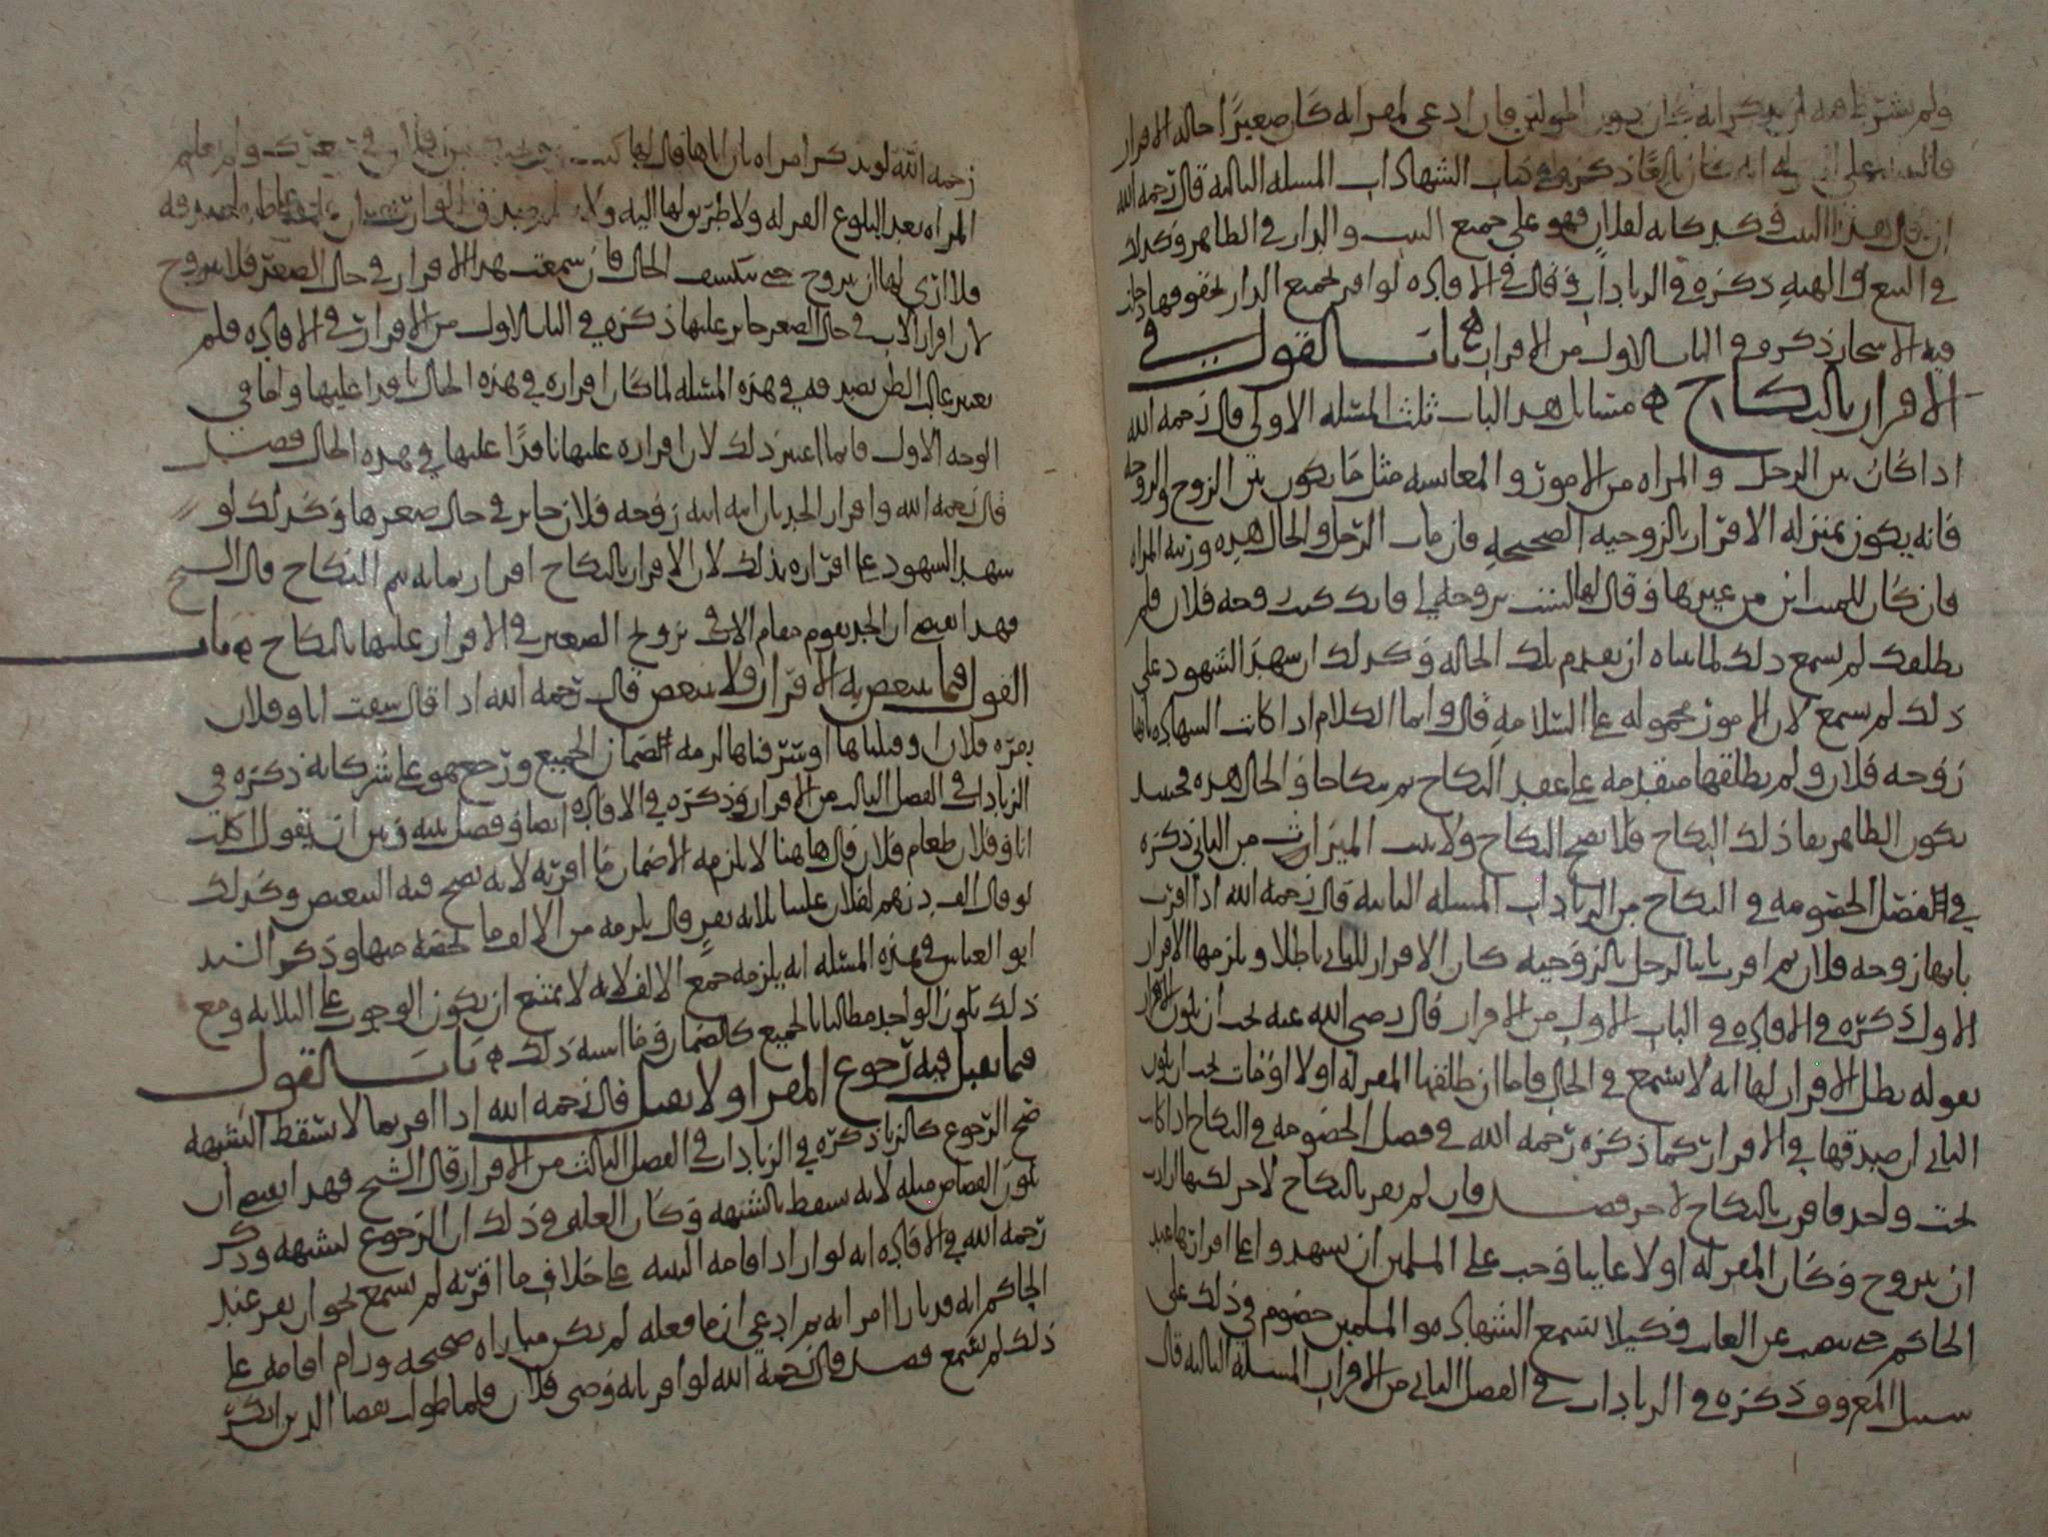 ولم يشترط هذه لم يذكر انه كان دون الحولين فان ادعى المقر انه كان صغيرا حاله الاقرار
فالبينه على انه كان بالغا ذكره في كتاب الشهادات المسله الثالثه قال رحمه الله
ان قال هذا البيت وكبدكانه لفلان فهو على جميع البيت والدار في الظاهر وكذلك
في البيع والهبه ذكره في الزيادات وقال في الافاده لو اقر بجميع الدار بحقوقها جاز
فيه الاستحان ذكره في الباب الاول من الاقرار ه باب القول في
الاقرار بالنكاح ه مسائل هذا الباب ثلث المسئله الاولى قال رحمه الله
اذا كان بين الرجل والمراه من الامور والمعايشه مثل ما يكون بين الزوج والزوجه
فانه يكون بمنزله الاقرار بالزوجيه الصحيحه فان مات الرجل والحال هذه ورثته المراه
فان كان للميت ابن من غيرها وقال لها لست بزوجه ابي فانك كنت زوجه فلان فلم
يطلقك لم يسمع ذلك لما بيناه ان تقدم تلك الحاله وكذلك ان شهد الشهود على
ذلك لم يسمع لان الامور محموله على السلامه قال وانما الكلام اذا كانت الشهاده بانها
زوجه فلان ولم يطلقها متقدمه على عقد النكاح ثم نكاحا والحال هذه فحينئذ
يكون الظاهر بقا ذلك النكاح فلا يصح النكاح ولا يثبت الميراث من الثاني ذكره
في الفصل الخصومه في النكاح من الزيادات المسله الثانيه قال رحمه الله اذا اقرت
بانها زوجه فلان ثم اقرت ثانيا لرجل بالزوجيه كان الاقرار للثاني باطلا ويلزمها الاقرار
الاول ذكره في الافاده في الباب الاول من الاقرار قال رضي الله عنه يجب ان يكون المراد
بقوله بطل الاقرار لها انه لا يسمع في الحال فاما ان طلقها المقر له اولا او مات يجب ان يكون
الثاني ان صدقها في الاقرار كما ذكره رحمه الله في فصل الخصومه في النكاح اذا كانت
تحت واحد فاقرت بالنكاح لاخر فصل فان لم تقر بالنكاح لاخر لكنها ارادت
ان تتزوج وكان المقر له اولا غايبا وجب على المسلمين ان يشهدوا على اقرارها عند
الحاكم حتى ينصب عن الغايب وكيلا تسمع الشهاده والمسلمين خصوم في ذلك على
سبيل المعروف ذكره في الزيادات في الفصل الثاني من الاقرار المسئله الثالثه قال
رحمه الله لو يذكر امراه بان اباها قال لها كنت زوجتك من فلان في صغرك ولم تعلم
المراه بعد البلوغ المقر له ولا طريق لها اليه ولا
فلا ارى لها ان تتزوج حتى ينكشف الحال فان سمعت هذا الاقرار في حال الصغر فلا تتزوج
لان اقرار الاب في حال الصغر جايز عليها ذكره في الباب الاول من الاقرار في الافاده فلم
يعتبر غالب الظن بصدقه في هذه المسئله لما كان اقراره في هذه الحال نافذا عليها واما في
الوجه الاول فانما اعتبر ذلك لان اقراره عليها نافذا عليها في هذه الحال فصل
قال رحمه الله واقرار الجد بان ابنه ابنه زوجه فلان جايز في حال صغرها وكذلك لو
شهد الشهود على اقراره بذلك لان الاقرار بالنكاح اقرار بما به يتم النكاح قال الشيخ
فهذا يقتضي ان الجد يقوم مقام الاب في تزويج الصغير في الاقرار عليها بالنكاح ه باب
القول فيما يتبعض به الاقرار ولا يتبعض قال رحمه الله اذا قال سقت انا وفلان
بقره فلان او قتلناها او سرقناها لزمه الضمان الجميع ورجع هو على شركائه ذكره في
الزيادات في الفصل الثالث من الاقرار وذكره في الافاده ايضا وفصل بينه وبين ان يقول اكلت
انا وفلان طعام فلان قال هاهنا لا يلزمه الا ضمان ما اقر به لانه يصح فيه التبعيض وكذلك
لو قال الف درهم لفلان علينا ثلاثه نفر قال يلزمه من الالف ما يخصه منها وذكر السيد
ابو العباس في هذه المسئله انه يلزمه جميع الالف لانه لا يمتنع ان يكون الوجوب على الثلاثه ومع
ذلك يكون الواحد مطالبا بالجميع كالضمان وما اشبه ذلك ه باب القول
فيما يقبل فيه رجوع المقر او لا يقبل قال رحمه الله اذا اقر بما لا يسقط الشبهه
صح الرجوع كالزنا ذكره في الزيادات في الفصل الثالث من الاقرار قال الشيخ فهذا يقتضي ان
يكون القصاص مثله لانه يسقط بالشبهه وكان العله في ذلك ان الرجوع لشبهه وذكر
رحمه الله في الافاده انه لو اراد اقامه البينه على خلاف ما اقر به لم يسمع نحو ان يقر عند
الحاكم انه قد بارا امراته ثم ادعى ان ما فعله لم يكن مباراه صحيحه ورام اقامه على
ذلك لم يسمع فصل قال رحمه الله لو اقر بانه وصي فلان فلما طولب بقضا الدين انكر